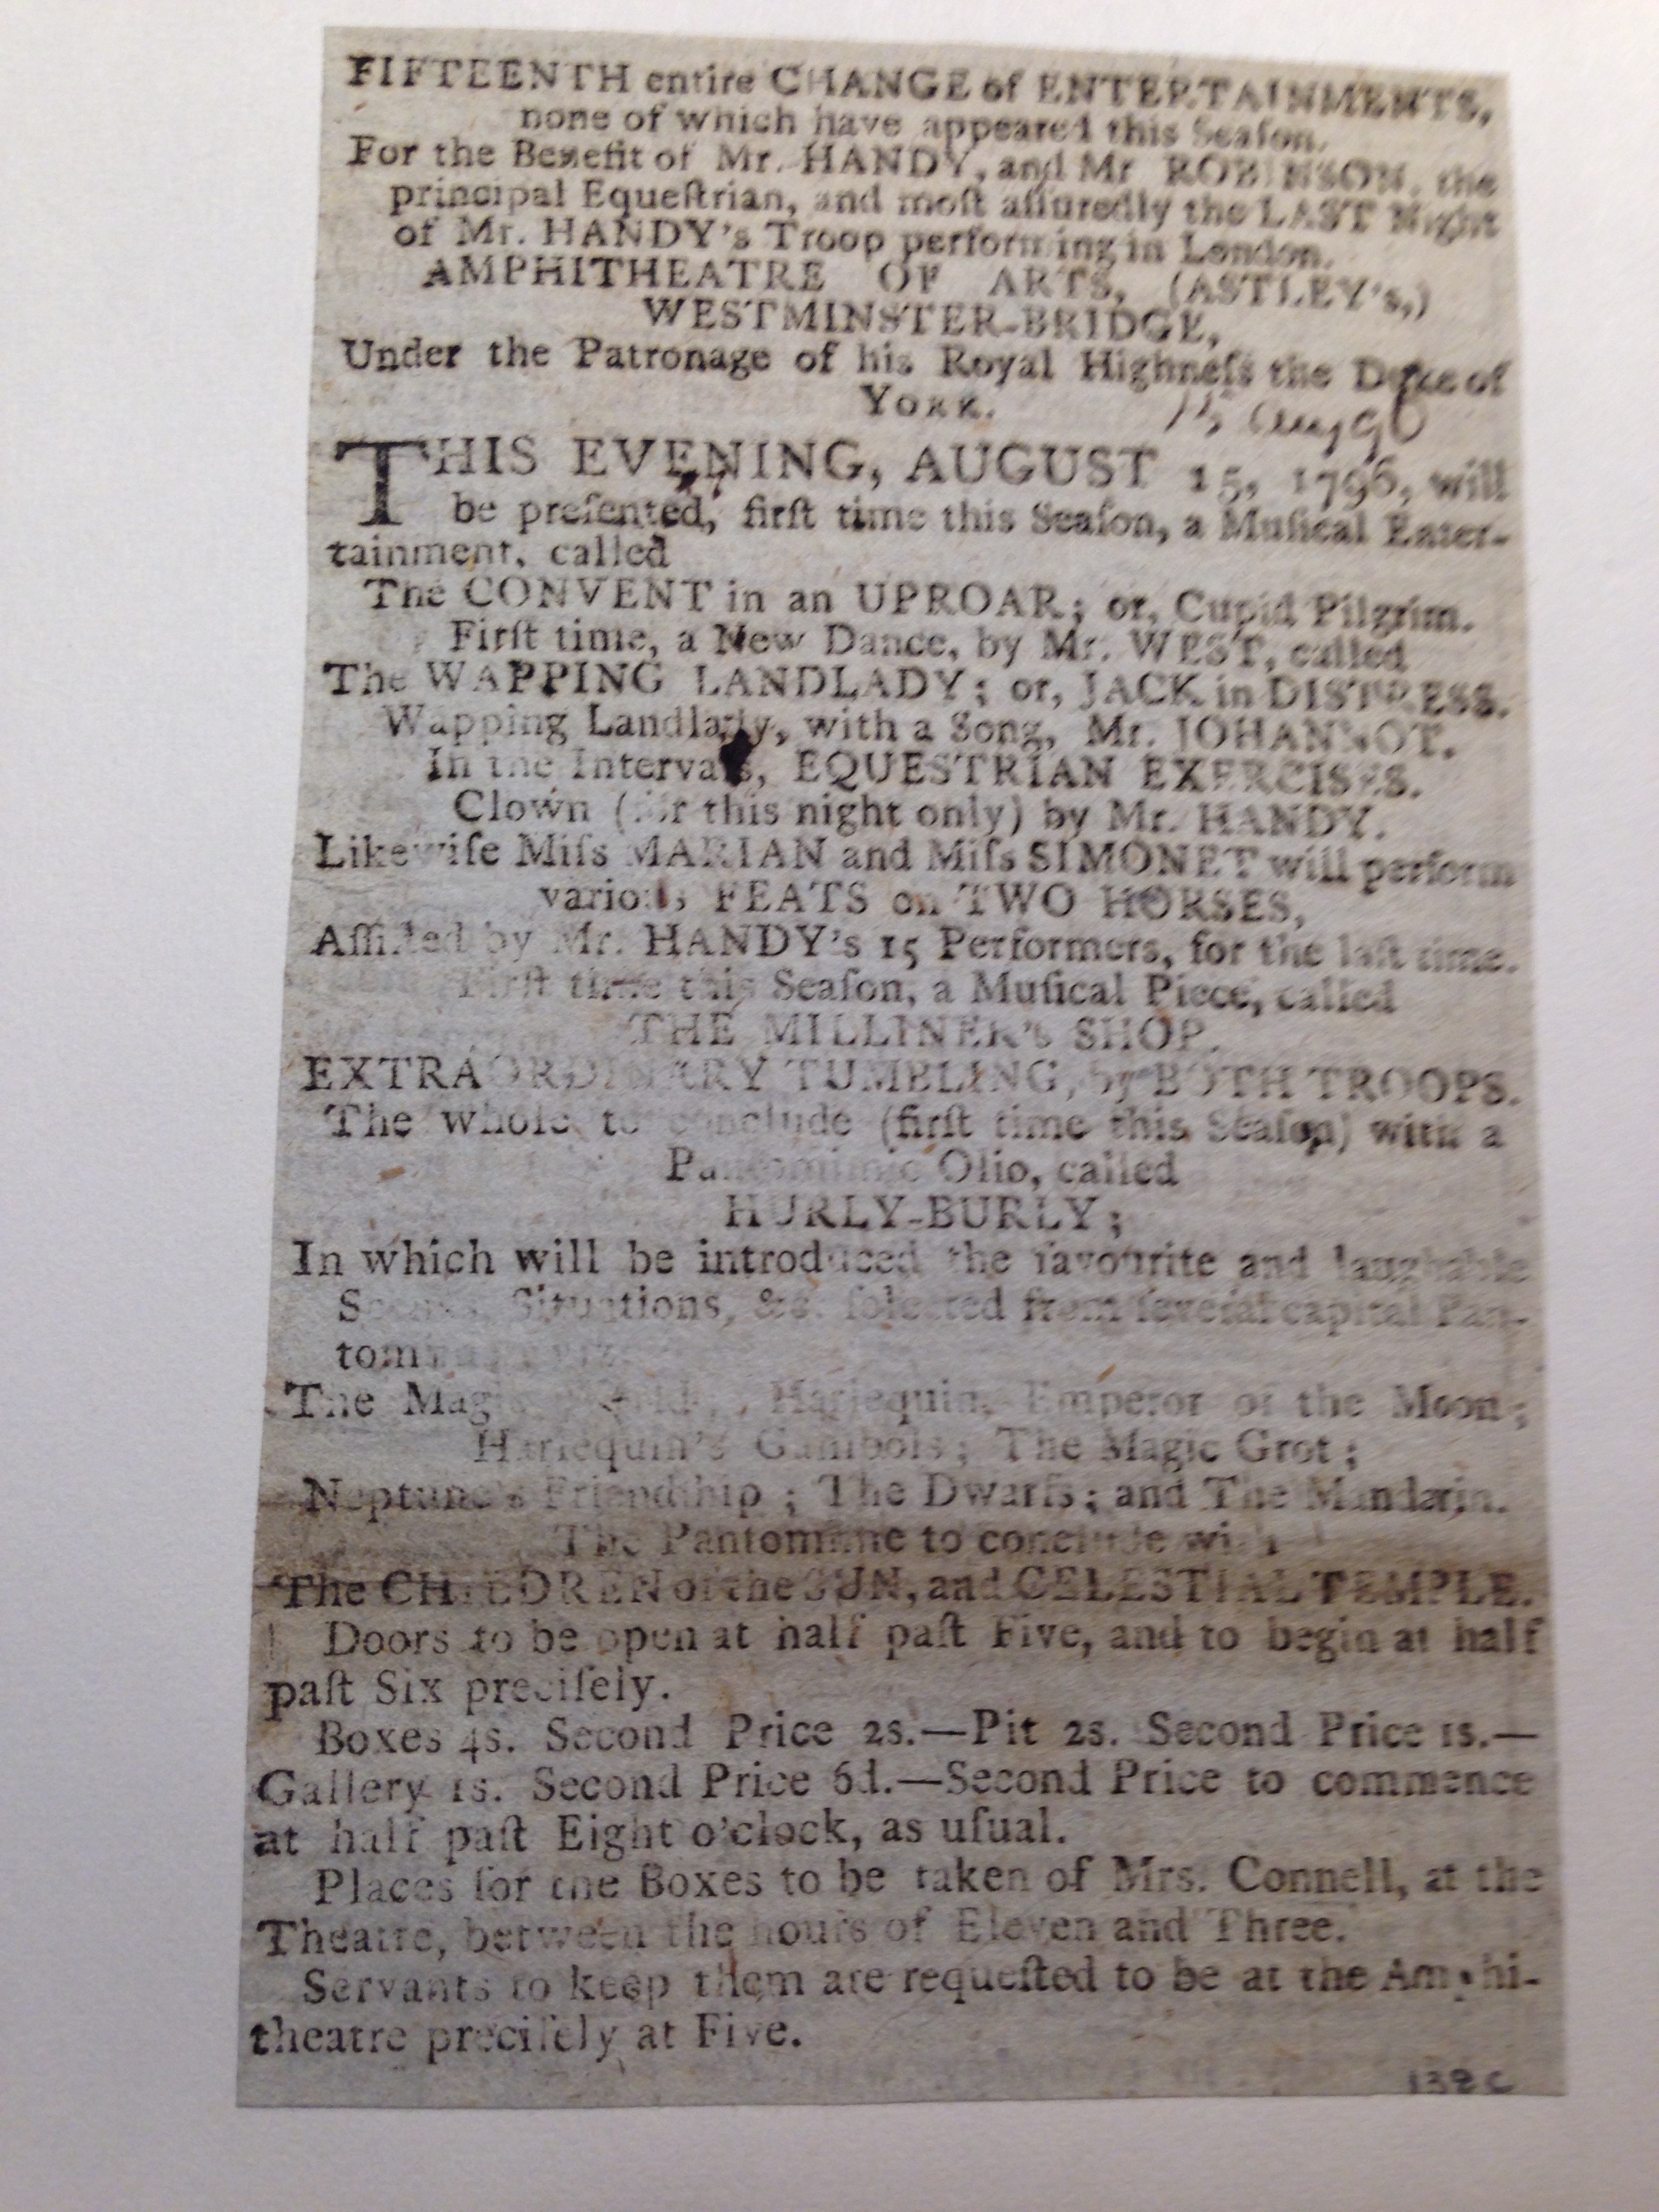 FIFTEENTH entire CHANGE of ENTERTAINMENTS,
none of which have appeared this Seaſon.
For the Benefit of Mr. HANDY, and Mr ROBINSON, the
principal Equeſtrian, and moſt aſſuredly the LAST Night
of Mr. HANDY's Troop performing in London.
AMPHITHEATRE OF ARTS, (ASTLEY's,)
WESTMINSTER-BRIDGE,
Under the Patronage of his Royal Highneſs the Duke of
YORK.
15 Aug 96
THIS EVENING, AUGUST 15, 1796, will
be preſented, firſt time this Seaſon, a Muſical Enter-
tainment, called
The CONVENT in an UPROAR; or, Cupid Pilgrim.
Firſt time, a New Dance, by Mr. WEST, called
The WAPPING LANDLADY; or, JACK in DISTRESS.
Wapping Landlady, with a Song, Mr. JOHANNOT.
In the Intervals, EQUESTRIAN EXERCISES.
Clown (for this night only) by Mr. HANDY.
Likewiſe Miſs MARIAN and Miſs SIMONET will perform
various FEATS on TWO HORSES,
Aſſiſted by Mr. HANDY's 15 Performers, for the laſt time.
Firſt time this Seaſon, a Muſical Piece, called
THE MILLINER's SHOP.
EXTRAORDINARY TUMBLING, by BOTH TROOPS.
The whole to conclude (firſt time this Seaſon) with a
Pantomimic Olio, called
HURLY-BURLY;
In which will be introduced the favourite and laughable
Scenes, Situations, &c. ſelected from ſeveral capital Pan-
The Harlequin, Emperor of the Moon;
Harlequin's Gambols; The Magic Grot;
Neptune's Friendſhip; The Dwarfs; and The Mandarin.
The Pantomime to conclude with
The CHILDREN of the SUN, and CELESTIAL TEMPLE.
Doors to be open at half paſt Five, and to begin at half
paſt Six preciſely.
Boxes 4s. Second Price 2s.—Pit 2s. Second Price 1s.—
Gallery 1s. Second Price 6d.—Second Price to commence
at half paſt Eight o'clock, as uſual.
Places for the Boxes to be taken of Mrs. Connell, at the
Theatre, between the hours of Eleven and Three.
Servants to keep them are requeſted to be at the Amphi-
theatre preciſely at Five.
138c